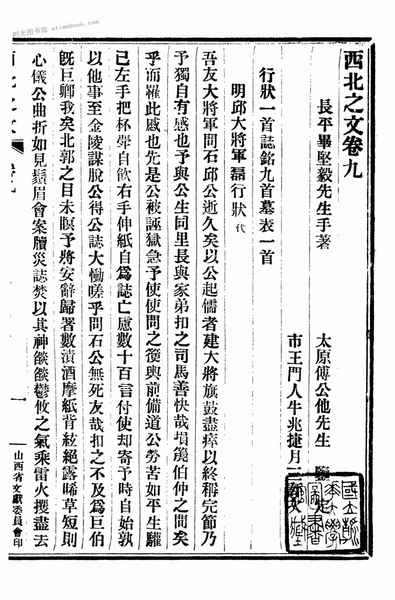 西北之文卷九
長平畢堅毅先生手著
太原傅公他先生
市王門人牛兆捷月三
行狀一首誌銘九首墓表一首
明邱大將軍磊行狀 代
吾友大將軍問石邱公逝久矣以公起儒者建大將旗鼓盡瘁以終稱完節乃
予獨自有感也予與公生同里長與家弟扣之司馬善快哉塤箎伯仲之間矣
乎而罹此慼也先是公被誣獄急予使使問之輿前備道公勞苦如平生驩
已左手把杯斝自飲右手伸紙自爲誌亡慮數十百言付使却寄予時自始孰
以他事至金陵謀脫公得公誌大慟嗟乎問石公無死友哉扣之不及爲巨伯
旣巨卿我矣北郭之目未瞑予將安辭歸署數漬酒摩紙背絃絕露晞草短則
心儀公曲折如見鬚眉會案牘災誌焚以其神燄燄鬱攸之氣乘雷火搜盡去
西北之文
卷九
一
山西省文獻委員會印